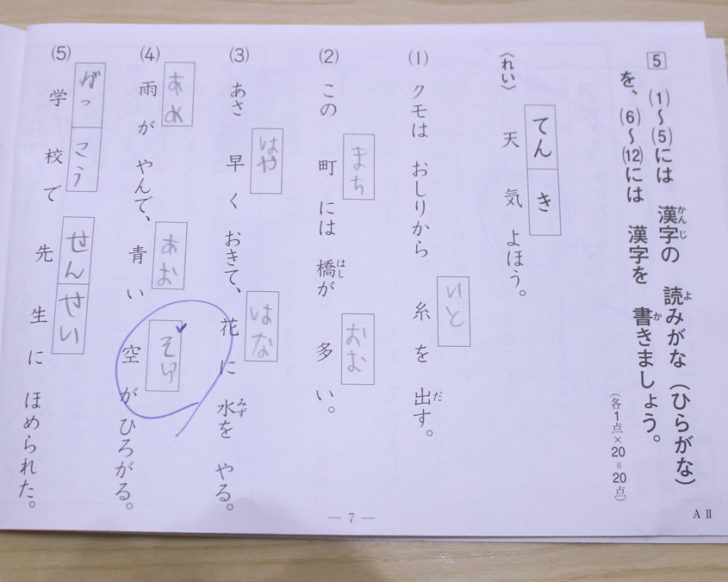 5
(1)～(5)には 漢字の 読みがな(ひらがな)
かんじ
よ
を、(6)～(12)には 漢字を 書きましょう。
か
(各1点×20=20点)
〈れい〉
てん き
天気よほう。
(1) クモは おしりから 糸を 出す。
いと
だ
(2) この 町には 橋が 多い。
まち
はし
おお
(3) あさ 早く おきて、花に 水を やる。
はや
はな
みず
(4) 雨が やんで、青い 空が ひろがる。
あめ
あお
(5) 学校で 先生に ほめられた。
がっ こう
せん せい
— 7 —
A II